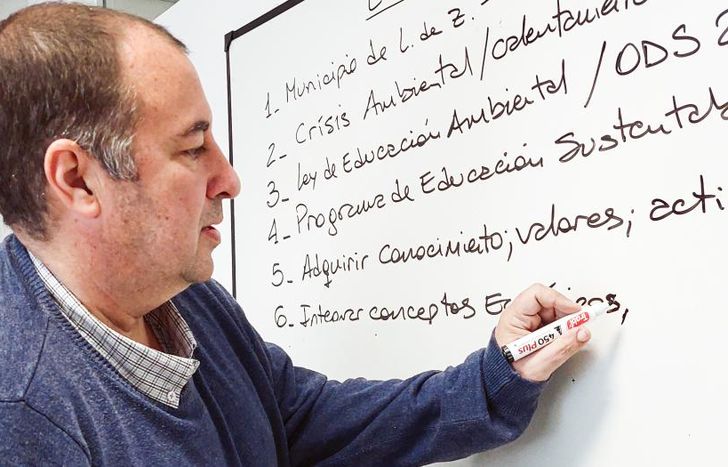 1_ Municipio de L. de Z.
2_ Crísis Ambiental/calentamiento
3_ Ley de Educación Ambiental / ODS 2
4_ Programa de Educación Sustentab
5_ Adquirir Conocimiento; valores; acti
6_ Integrar conceptos
450 Plus